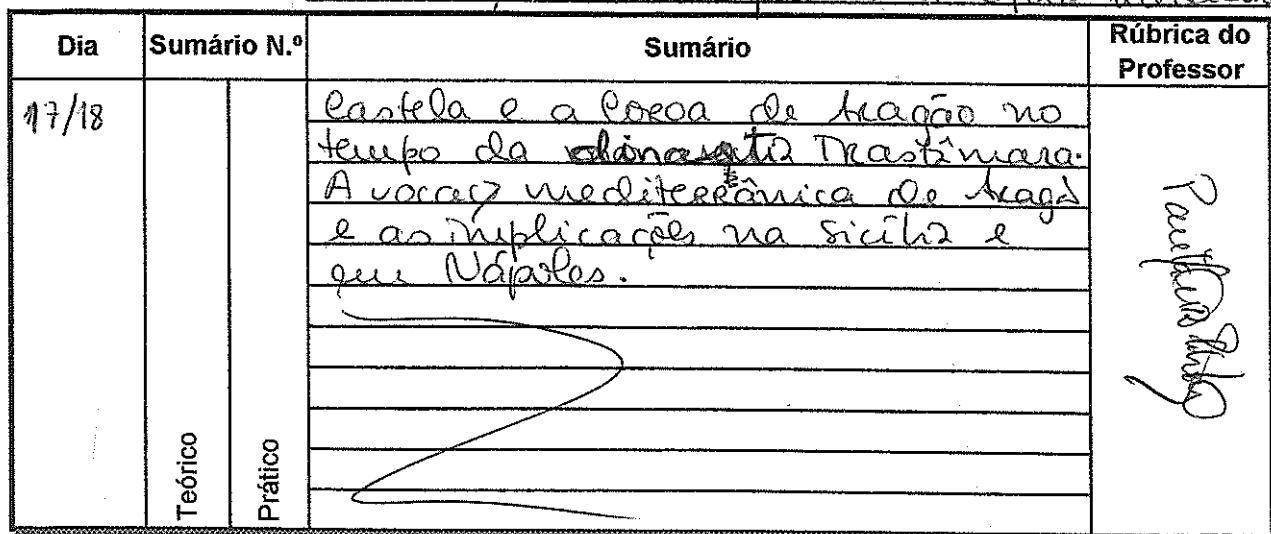 Dia
Sumário N.º
Sumário
Rúbrica do
Professor
17/18
Castela e a Coroa de Aragão no
tempo da dinastia Trastâmara.
A vocaç mediterrânica de Aragã
e as implicações na Sicília e
em Nápoles.
Teórico
Prático